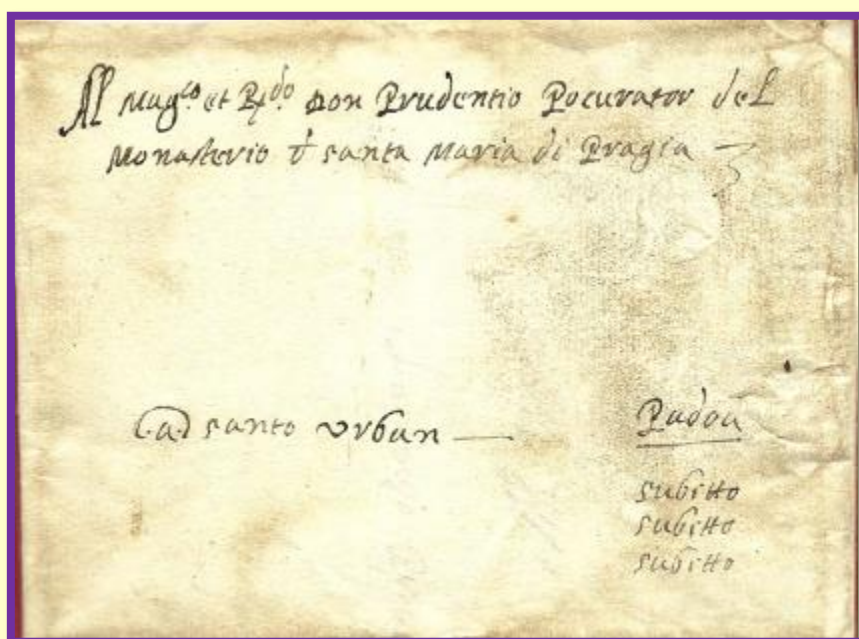 Al Mag.co et R.do Don Prudentio Pocurator del
Monasterio di santa Maria di Pragia
a santo Urban
Padoa
subitto
subitto
subitto